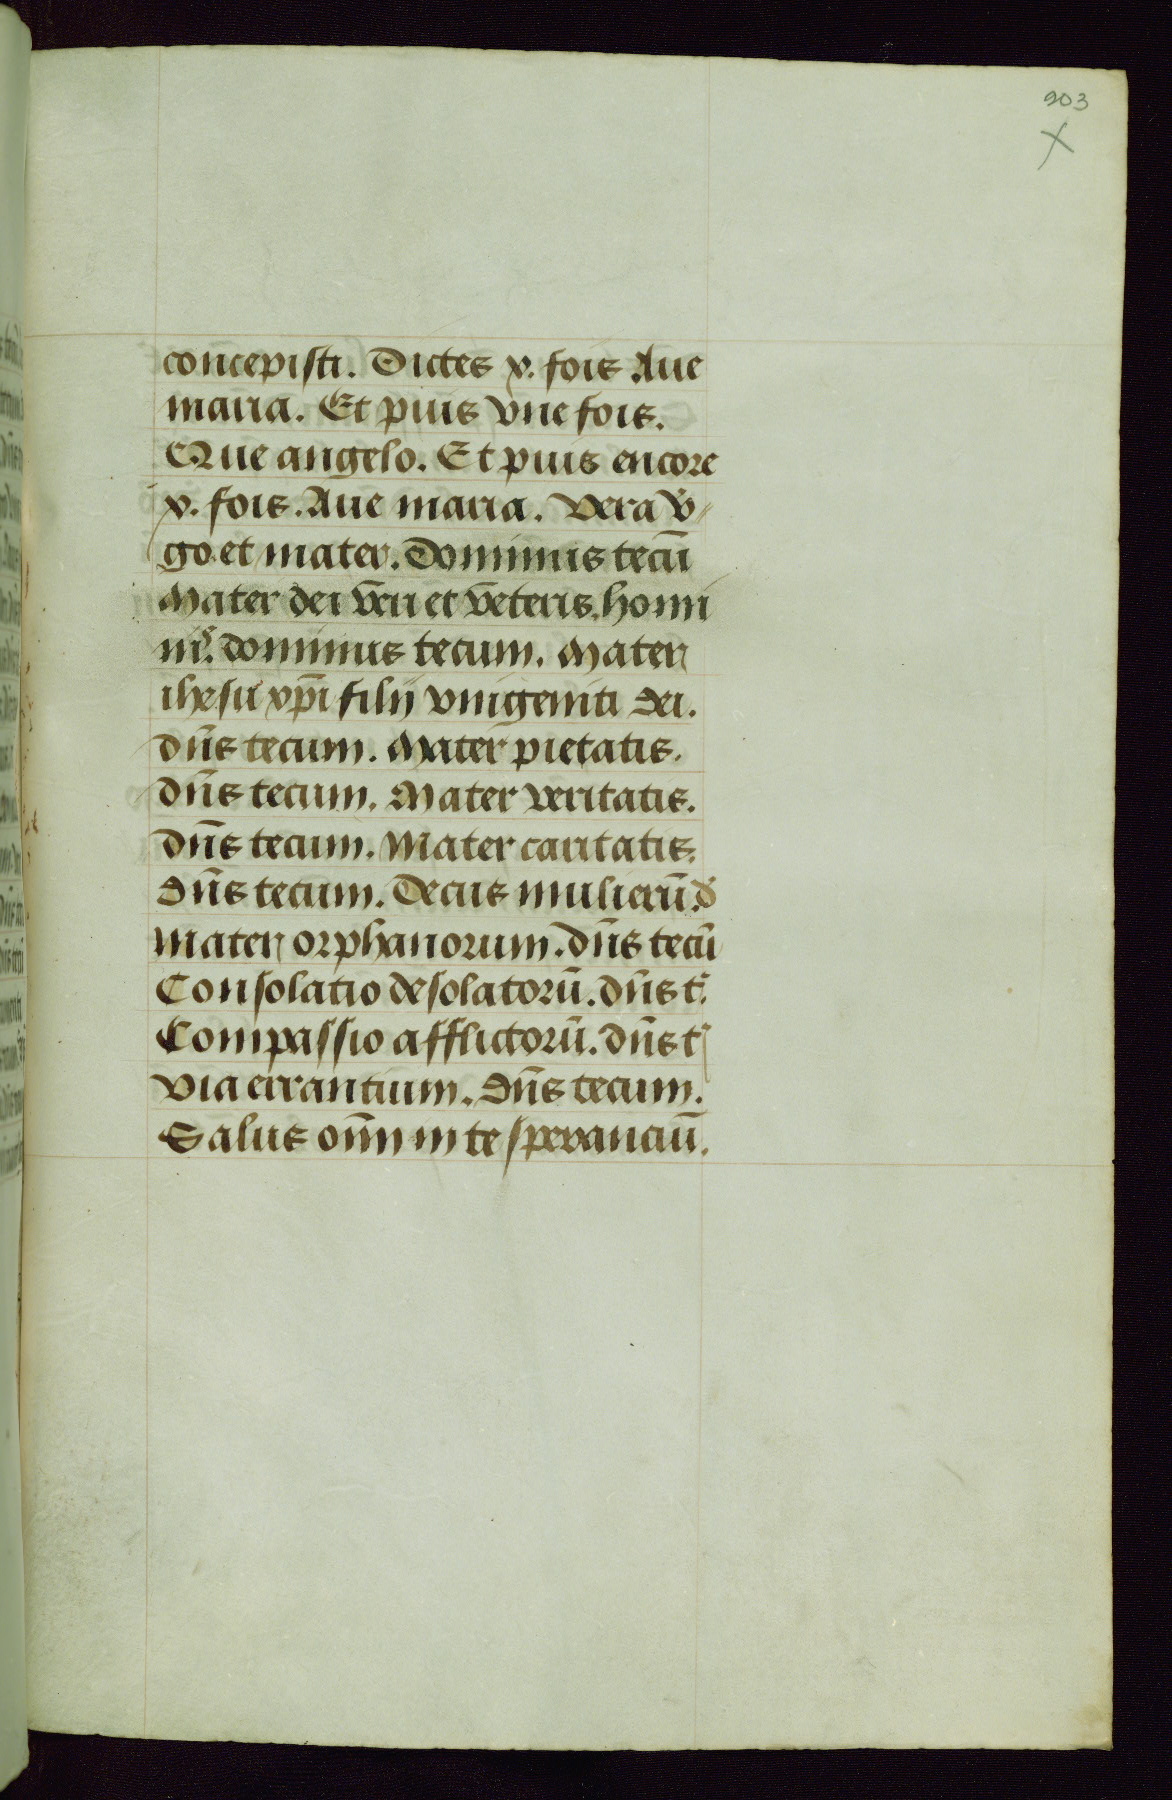 903
concepisti. Dictes x. fois Aue
maria. Et puis vne fois.
Que angelo. Et puis encore
x. fois. Aue maria. Vera v̄-
go et mater. Dominus tecū
Mater dei v̄eri et veteris. homi
dominus tecum. Mater
ihesu xp̄i filij vnigeniti dei.
dn̄s tecum. Mater pietatis.
dn̄s tecum. Mater veritatis.
dn̄s tecum. Mater caritatis.
dn̄s tecum. Decus mulierū. d̄
Mater orphanorum. dn̄s tecū
Consolatio desolatorū. dn̄s t̄.
Compassio afflictorū. dn̄s t̄
via errantium. dn̄s tecum.
Salus om̄n in te speranciū.